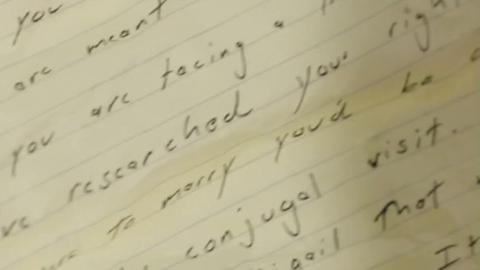 you
are meant
you are facing a
researched your
to marry you'd be
conjugal visit.
that
It